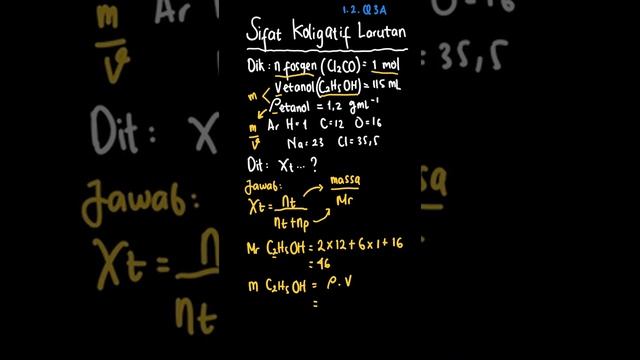 1.2.Q3A
Sifat Koligatif Larutan
Dik : n fosgen (Cl2CO) = 1 mol
m Vetanol (C2H5OH) = 115 mL
ρetanol = 1,2 gmL⁻¹
m/V Ar H=1 C=12 O=16
Na=23 Cl=35,5
Dit: Xt ... ?
Jawab: massa/Mr
Xt = nt/nt+np
Mr C2H5OH = 2×12+6×1+16
= 46
m C2H5OH = ρ.V
=
m/V Ar
Dit:
Jawab:
Xt = n/nt
O=16
= 35,5
sa